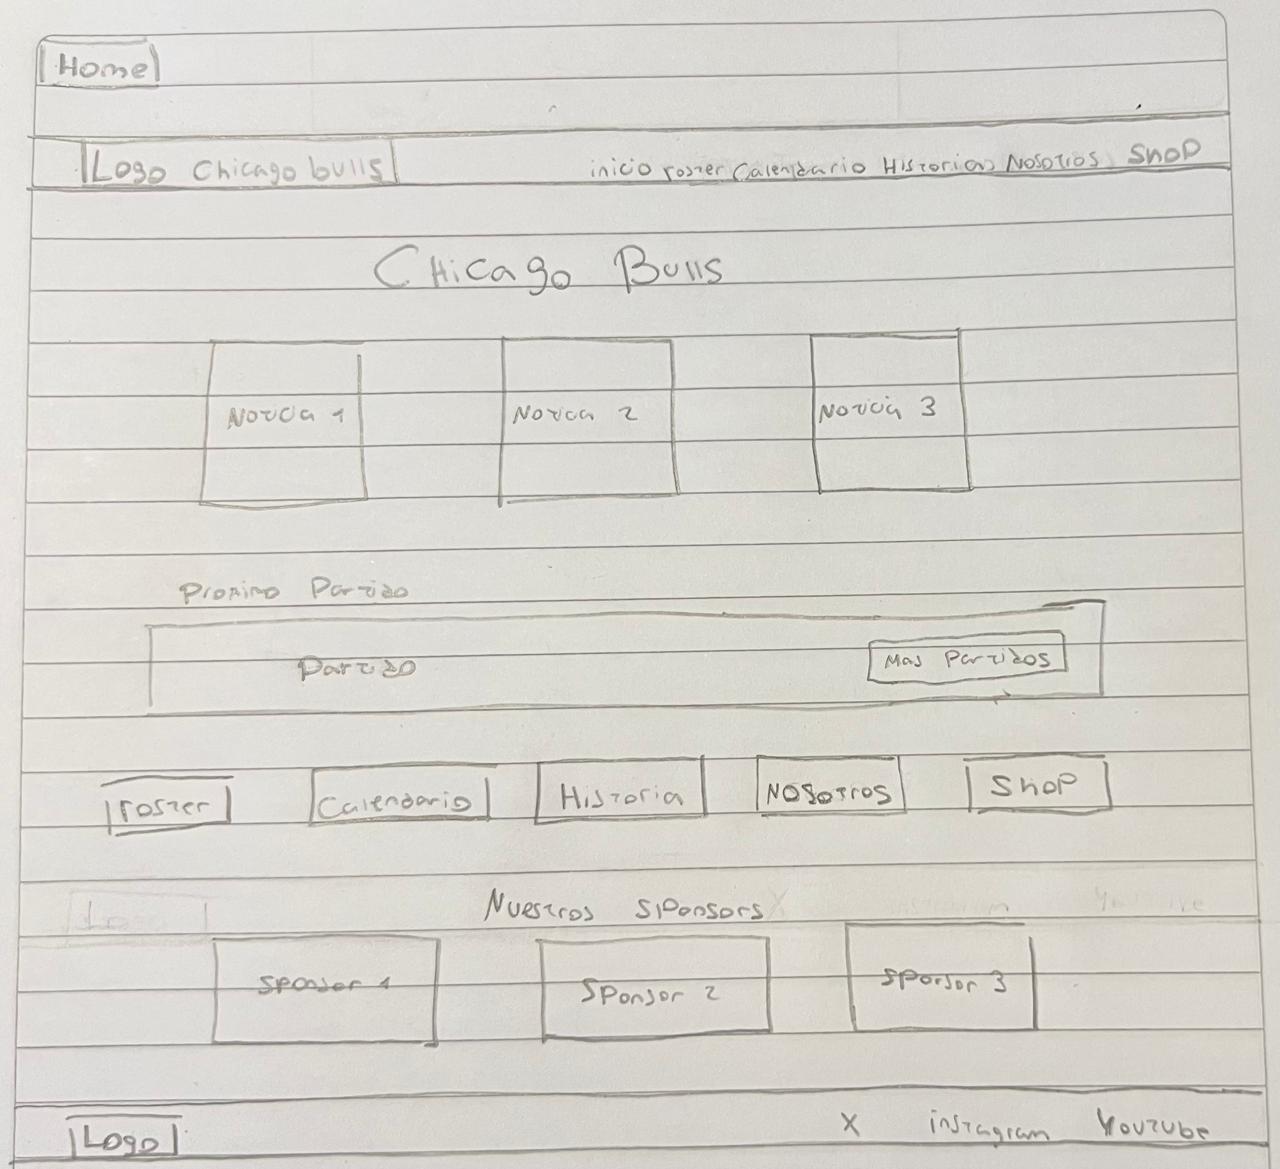 Home
Logo Chicago bulls
inicio roster Calendario Historias Nosotros Shop
Chicago Bulls
Noticia 1 Noticia 2 Noticia 3
Proximo Partido
Partido Mas Partidos
roster Calendario Historia Nosotros Shop
Nuestros Sponsors
Sponsor 1 Sponsor 2 Sponsor 3
Logo X instagram Youtube